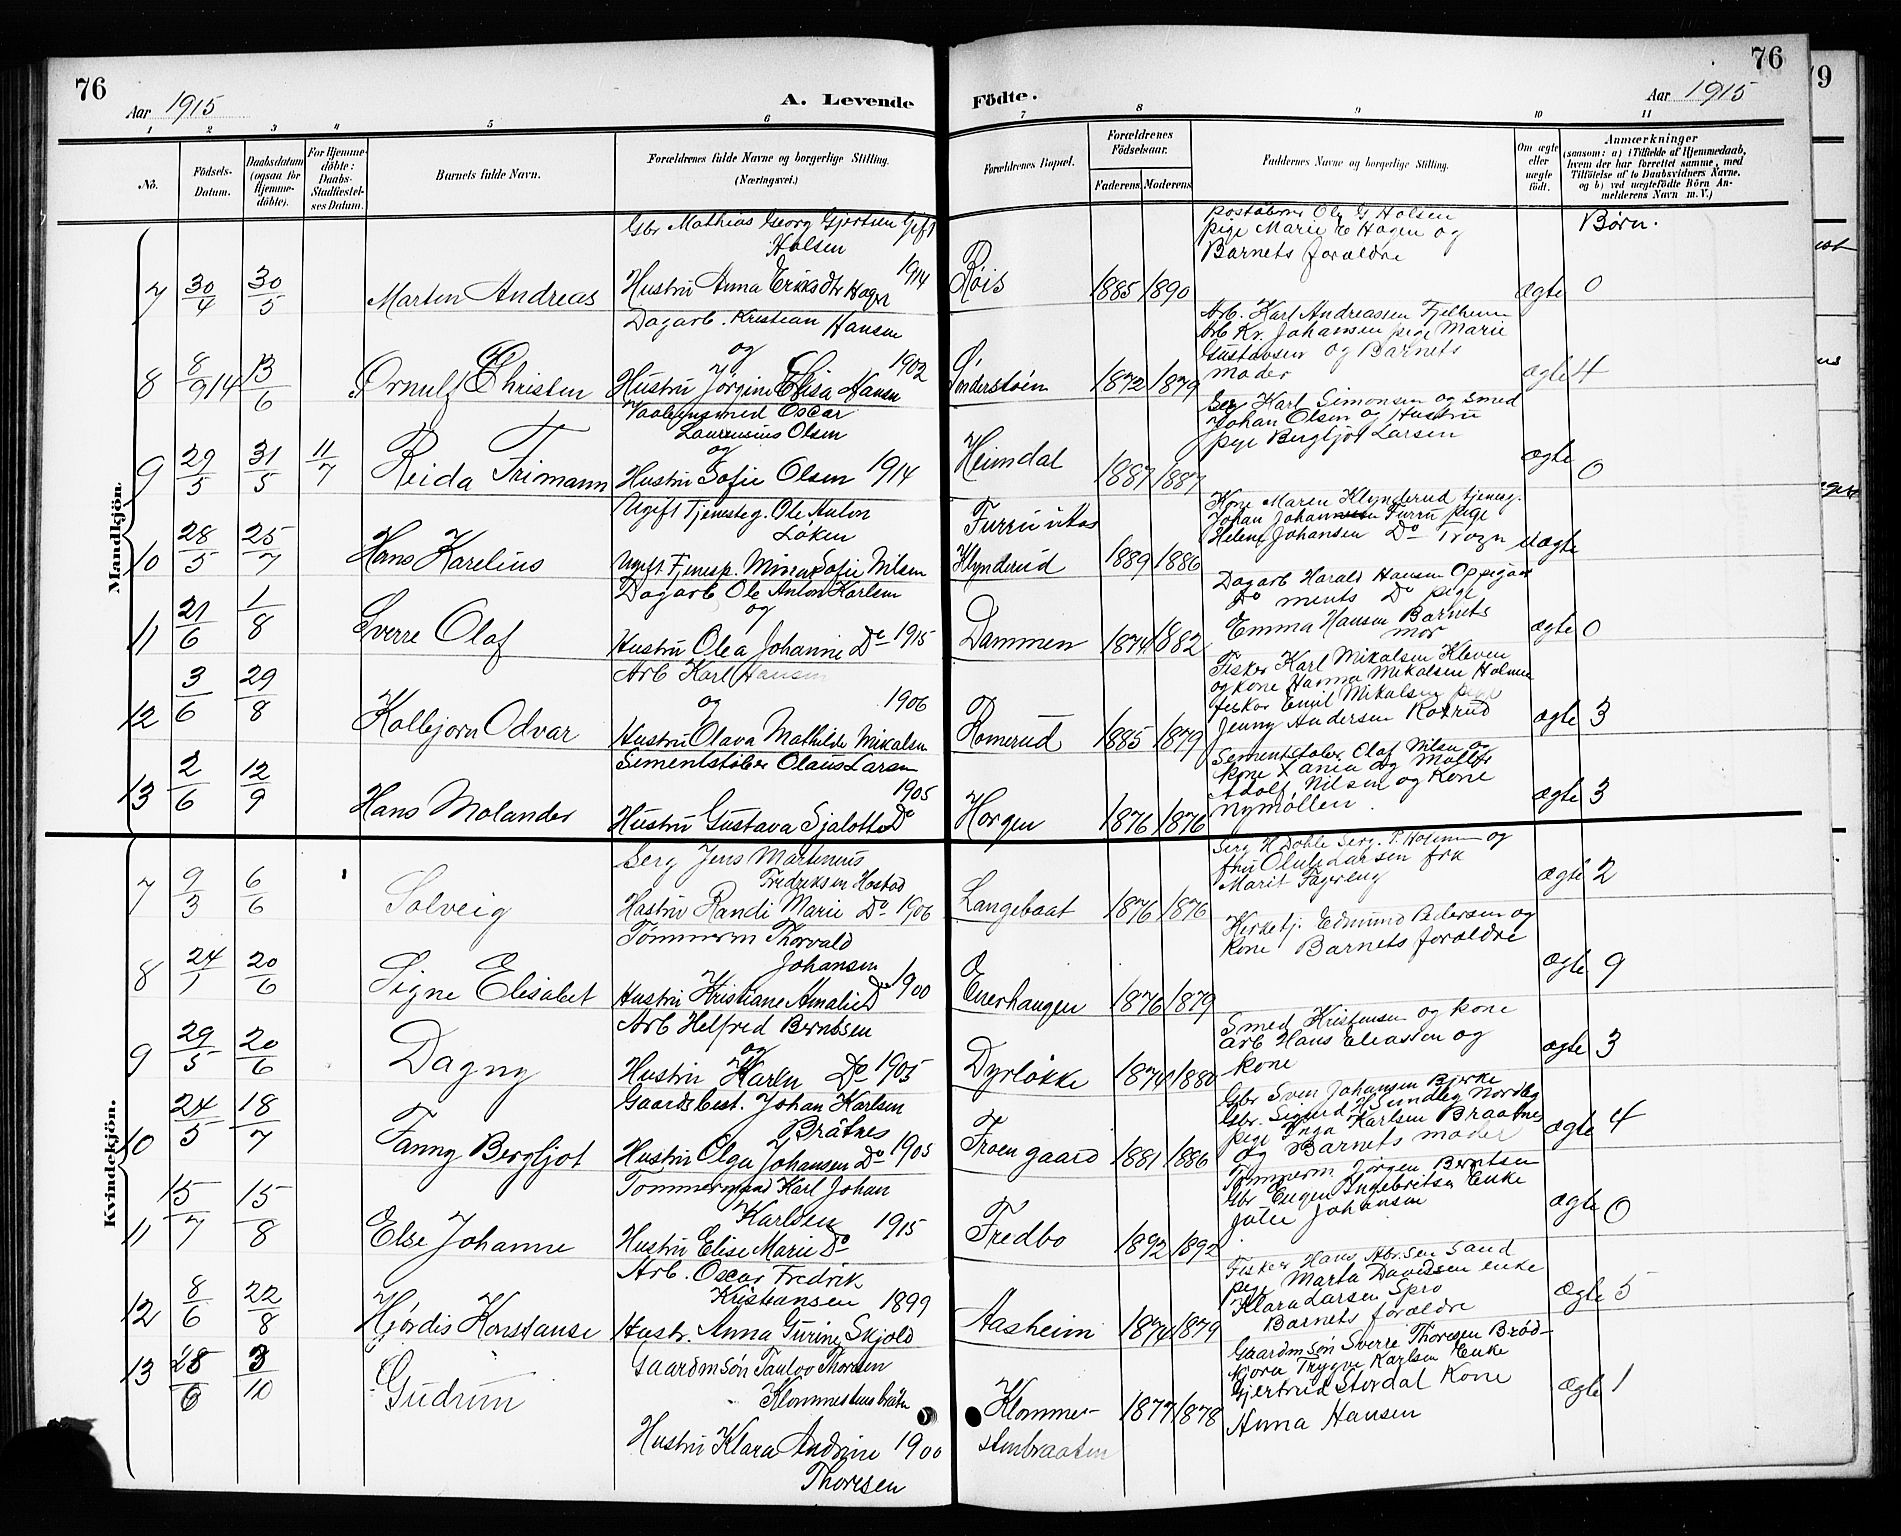 76
Aar 1915
A. Levende
Födte.
Aar 1915
76
79
1 2 3 4 5 6 7 8 9 10 11
No.
Födsels-Datum.
Daabsdatum (ogsaa for Hjemme-döbte).
For Hjemme-döbte: Daabs-Stadfæstel-ses Datum.
Barnets fulde Navn.
Forældrenes fulde Navne og borgerlige Stilling. (Næringsvei.)
Forældrenes Bopæl.
Forældrenes Födselsaar.
Faderens Moderens
Faddernes Navne og borgerlige Stilling.
Om ægte eller uægte födt.
Anmærkninger
(saasom: a) i Tilfælde af Hjemmedaab, hvem der har forrettet samme, med Tilföielse af to Daabsvidners Navne, og b) ved uægtefödte Börn An-melderens Navn m. V.)
Børn.
Mandkjön.
7 30/4 30/5 Marten Andreas
Gbr Mathias Georg Gjertsen Gift
Holsen
Hustru Anna Eriksdtr Hagen 1914
Røis 1885 1890
Postaabner Ole G Holsen
pige Marie E Hagen og
Barnets forældre
ægte 0
8 8/9 14 13/6 Ørnulf Christen
Dagarb. Kristian Hansen
og
Hustru Jørgine Elisa Hansen 1902
Sønderstøen 1872 1879
Arb. Karl Andreassen Fjelheim
Arb Kr. Johansen pige Marie
Gustavsen og Barnets
moder
ægte 4
9 29/5 31/5 11/7 Reida Frimann
Oscar
Laurensius Olsen
og
Hustru Sofie Olsen 1914
Heimdal 1887 1887
Karl Simonsen og Smed
Johan Olsen og Hustru
pige Bergljot Larsen
ægte 0
10 28/5 25/7 Hans Karelius
Ugift Tjenesteg. Ole Anton
Løken
Ugift Tjenesp. Minna Sofie Nilsen
Furru
Klynderud 1889 1886
Kone Maren Klynderud tjenesg.
Johan Johannesen Furru pige
Helene Johansen Do
uægte
11 21/6 1/8 Sverre Olaf
Dagarb Ole Anton Karlsen
og
Hustru Olea Johanne Do 1915
Dammen 1874 1882
Dagarb Harald Hansen Oppegaard
Do Do pige
Emma Hansen Barnets
mor
ægte 0
12 3/6 29/8 Kolbjørn Odvar
Arb Karl Hansen
og 1906
Hustru Olava Mathilde Mikalsen
Romerud 1885 1879
Fisker Karl Mikalsen Kleven
og kone Hanna Mikalsen Holmen
fisker Emil Mikalsen pige
Jenny Andersen
ægte 3
13 2/6 12/9 Hans Molander
Sementstøber Olaus Larsen
1905
Hustru Gustava Sjalotte Do
Horgen 1876 1876
Sementstøber Olaf Nilsen og
kone og Møller
Adolf Nilsen og Kone
Nymøllen.
ægte 3
Kvindekjön.
7 9/3 6/6 Solveig
Serg Jens Martinius
Fredriksen Hostad
Hustru Randi Marie Do 1906
Langebaat 1876 1876
Serg H Dahle Serg. P. og
fru Larsen frk
Marit Fagereng
ægte 2
8 24/1 20/6 Signe Elisabet
Tømmerm Thorvald
Johansen
Hustru Kristiane Amalie Do 1900
Enerhaugen 1876 1879
Kirketj. Edmund Pedersen og
Kone Barnets forældre
ægte 9
9 29/5 20/6 Dagny
Arb Helfred Berntsen
og
Hustru Karen Do 1905
Dyrløkke 1874 1880
Smed Kristensen og kone
Arb Hans Eliassen og
kone
ægte 3
10 24/5 18/7 Fanny Bergljot
Gaardsbest. Johan Karlsen
Bråtnes
Hustru Olga Johansen Do 1905
Froen gaard 1881 1886
Gbr Sven Johansen Bjerke
Gbr. Sigurd H Sundbeg Nordby
pige Inga Karlsen Braatnes
og Barnets moder
ægte 4
11 15/7 15/8 Else Johanne
Tømmermand Karl Johan
Karlsen
Hustru Elise Marie Do 1915
Fredbo 1892 1892
Tømmerm Jørgen Berntsen
Gbr Eugen Ingebretsen Enke
Julie Johansen
ægte 0
12 8/6 22/8 Hjördis Konstanse
Arb. Oscar Fredrik
Kristiansen 1899
Hustr. Anna Gurine Skjold
Aasheim 1874 1879
Fisker Hans Abrsen Sand
pige Marta Davidsen enke
Klara Larsen Spro
Barnets forældre
ægte 5
13 28/6 3/10 Gudrun
Gaardmsøn Thoresen
Hustru Klara Andrine 1900
Thoresen
Klommer-
stenbraaten 1877 1878
Gaardmsøn Sverre Thoresen Brød-
kjører Trygve Karlsen Enke
Gjertrud Stordal Kone
Anna Hansen
ægte 1